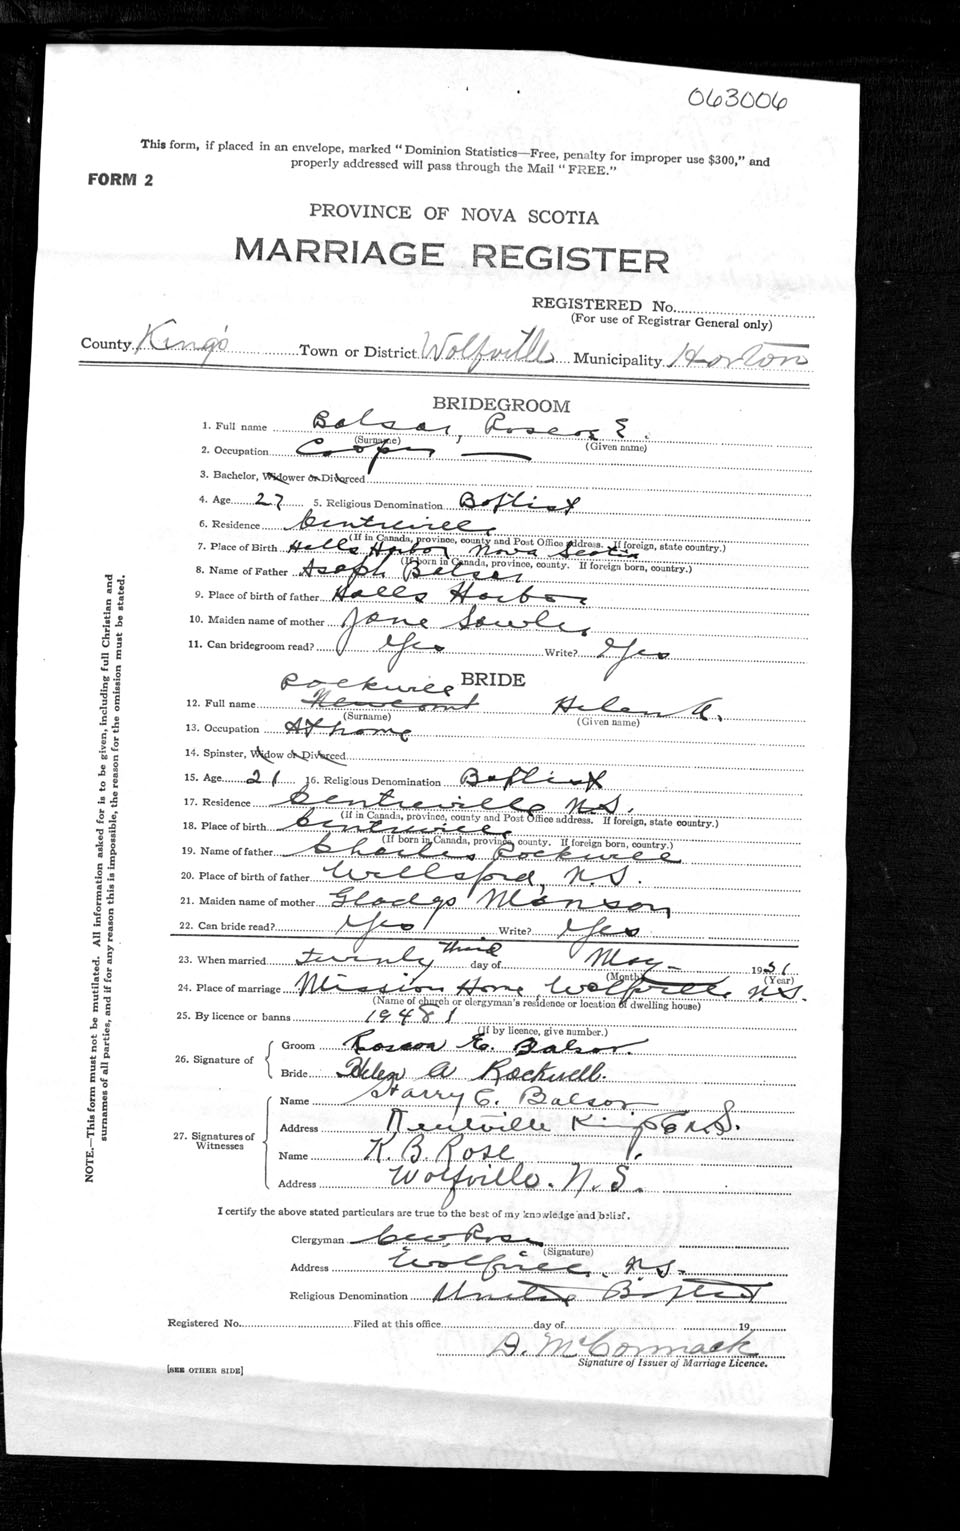 063006
This form, if placed in an envelope, marked "Dominion Statistics—Free, penalty for improper use $300," and
properly addressed will pass through the Mail "FREE."
FORM 2
PROVINCE OF NOVA SCOTIA
MARRIAGE REGISTER
REGISTERED No.
(For use of Registrar General only)
County King's Town or District Wolfville Municipality Horton
BRIDEGROOM
1. Full name Balsor, Roscoe E.
(Surname) (Given name)
2. Occupation Cooper
3. Bachelor, Widower or Divorced
4. Age 27 5. Religious Denomination Baptist
6. Residence Centreville
(If in Canada, province, county and Post Office address. If foreign, state country.)
7. Place of Birth Halls Harbor Nova Scotia
(If born in Canada, province, county. If foreign born, country.)
8. Name of Father Asaph Balsor
9. Place of birth of father Halls Harbor
10. Maiden name of mother Jane
11. Can bridegroom read? Yes Write? Yes
BRIDE
Rockwell
12. Full name Newcomb Helen A.
(Surname) (Given name)
13. Occupation At home
14. Spinster, Widow or Divorced
15. Age 21 16. Religious Denomination Baptist
17. Residence Centreville N.S.
(If in Canada, province, county and Post Office address. If foreign, state country.)
18. Place of birth Centreville
(If born in Canada, province, county. If foreign born, country.)
19. Name of father Charles Rockwell
20. Place of birth of father Willsford, N.S.
21. Maiden name of mother Gladys Manson
22. Can bride read? Yes Write? Yes
23. When married Twenty Third day of May 1931
(Month) (Year)
24. Place of marriage Mission Home Wolfville N.S.
(Name of church or clergyman's residence or location of dwelling house)
25. By licence or banns 19481
(If by licence, give number.)
26. Signature of
Groom Roscoe E. Balsor.
Bride Helen A Rockwell.
27. Signatures of Witnesses
Name Harry C. Balsor
Address Kentville Kings Co N.S.
Name K. B. Rose
Address Wolfville. N.S.
I certify the above stated particulars are true to the best of my knowledge and belief.
Clergyman Geo. Rose
(Signature)
Address Wolfville, N.S.
Religious Denomination United Baptist
Registered No. Filed at this office day of 19
D. McCormack
Signature of Issuer of Marriage Licence.
[SEE OTHER SIDE]
NOTE.—This form must not be mutilated. All information asked for is to be given, including full Christian and
surnames of all parties, and if for any reason this is impossible, the reason for the omission must be stated.